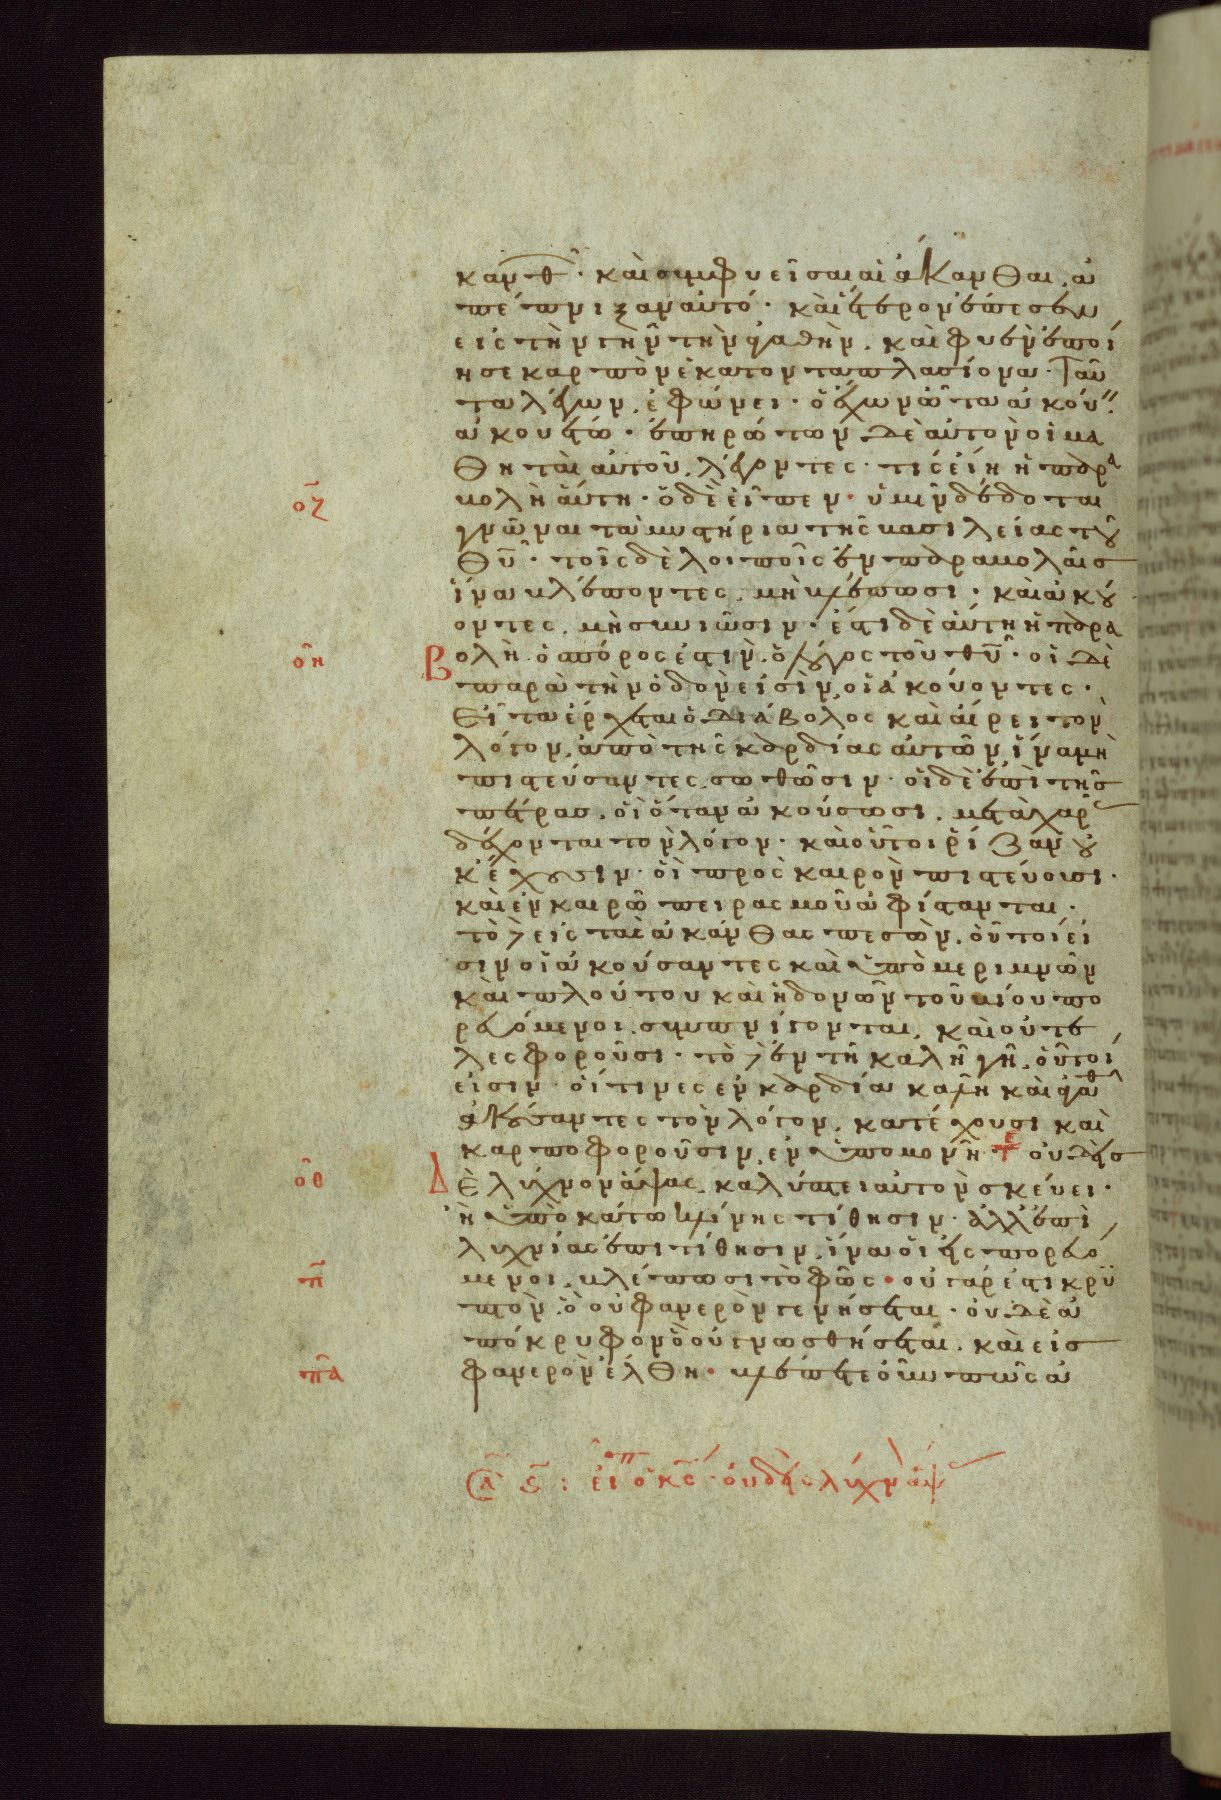 κανθ̑· καὶ συμφυεῖσαι αἱ ἄκανθαι, ἀ
πέπνιξαν αὐτό· καὶ ἕτερον ἔπεσεν
εἰς τὴν γῆν τὴν ἀγαθὴν, καὶ φυὲν ἐποί
ησε καρπὸν ἑκατονταπλασίονα· Ταῦ
τα λέγων, ἐφώνει· ὁ ἔχων ὦτα ἀκούειν
ἀκουέτω· ἐπηρώτων δὲ αὐτὸν οἱ μα
θηταὶ αὐτοῦ, λέγοντες· τίς εἴη ἡ παρα
βολὴ αὕτη· ὁ δὲ εἶπεν· ὑμῖν δέδοται
γνῶναι τὰ μυστήρια τῆς βασιλείας τοῦ
θῦ· τοῖς δὲ λοιποῖς ἐν παραβολαῖς
ἵνα βλέποντες, μὴ βλέπωσι· καὶ ἀκού
οντες, μὴ συνιῶσιν· ἔστι δὲ αὕτη ἡ παρα
βολὴ· ὁ σπόρος ἐστὶν, ὁ λόγος τοῦ θῦ· οἱ δὲ
παρὰ τὴν ὁδόν εἰσὶν, οἱ ἀκούοντες·
εἶτα ἔρχεται ὁ διάβολος καὶ αἴρει τὸν
λόγον, ἀπὸ τῆς καρδίας αὐτῶν, ἵνα μὴ
πιστεύσαντες, σωθῶσιν· οἱ δὲ ἐπὶ τῆς
πέτρας, οἳ ὅταν ἀκούσωσι, μετὰ χαρ
δέχονται τὸν λόγον· καὶ οὗτοι ῥίζαν οὐ
κ ἔχουσιν· οἳ πρὸς καιρὸν πιστεύουσι·
καὶ ἐν καιρῶ πειρασμοῦ ἀφίστανται·
τὸ δὲ εἰς τὰς ἀκάνθας πεσὸν, οὗτοί εἰ
σιν οἱ ἀκούσαντες καὶ ὑπὸ μεριμνῶν
καὶ πλούτου καὶ ἡδονῶν τοῦ βίου πο
ρευόμενοι, συμπνίγονται, καὶ οὐ τε
λεσφοροῦσι· τὸ δὲ ἐν τῆ καλῆ γῆ, οὗτοί
εἰσιν· οἵτινες ἐν καρδία καλῆ καὶ ἀγαθ
ἀκούσαντες τὸν λόγον, κατέχουσι καὶ
καρποφοροῦσιν, ἐν ὑπομονῆ οὐδεὶς
οζ
οη
Δὲ λύχνον ἅψας, καλύπτει αὐτὸν σκεύει·
ἢ ὑποκάτω κλίνης τίθησιν· ἀλλ ἐπὶ
λυχνίας ἐπιτίθησιν, ἵνα οἱ εἰσπορευό
μενοι, βλέπωσι τὸ φῶς· οὐ γάρ ἐστι κρυ
πτὸν, ὃ οὐ φανερὸν γενήσεται· οὐδὲ ἀ
πόκρυφον ὃ οὐ γνωσθήσεται, καὶ εἰς
φανερὸν ἔλθη· βλέπετε οὖν πῶς ἀ
οθ
π
πα
εἶπ ὁ κς· οὐδεὶς λύχν ἅψ